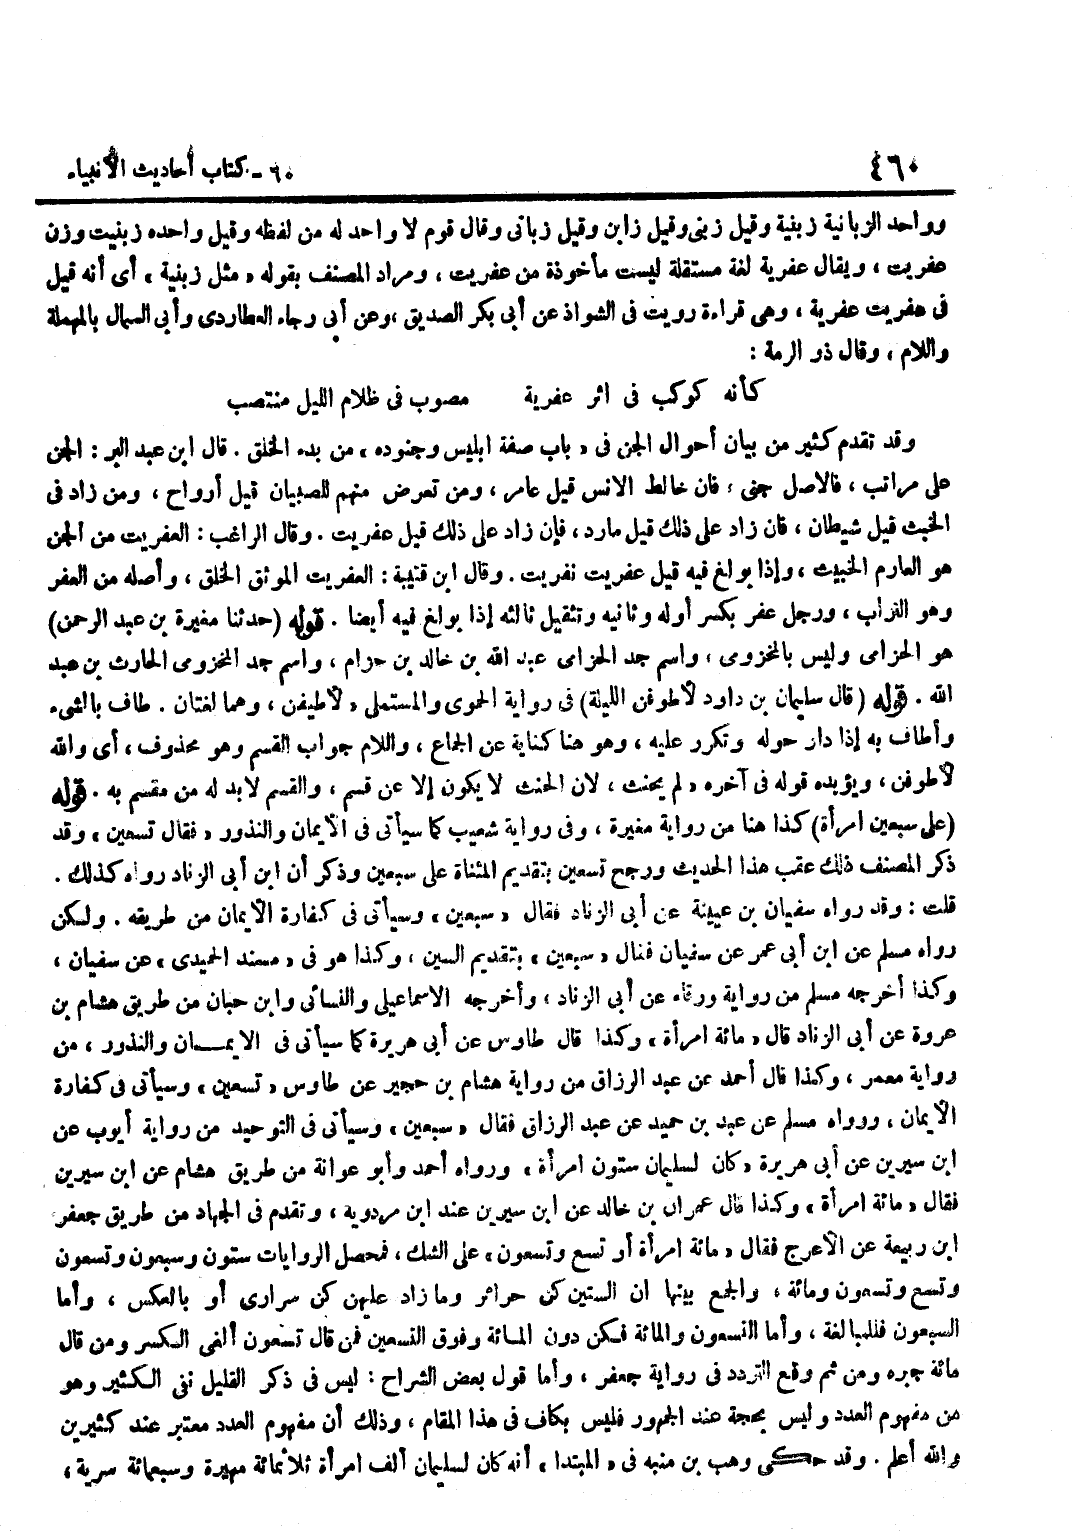 ٤٦٠
٦٠ - كتاب أحاديث الأنبياء
وواحد الزبانية زبنية وقيل زبنى وقيل زابن وقيل زبانى وقال قوم لا واحد له من لفظه وقيل واحده زبنيت وزن
عفريت ، ويقال عفرية لغة مستقلة ليست مأخوذة من عفريت ، ومراد المصنف بقوله « مثل زبنية » أى أنه قيل
فى عفريت عفرية ، وهى قراءة رويت فى الشواذ عن أبى بكر الصديق ، وعن أبى رجاء العطاردى وأبى السمال بالمهملة
واللام ، وقال ذو الرمة :
كأنه كوكب فى اثر عفرية مصوب فى ظلام الليل منتصب
وقد تقدم كثير من بيان أحوال الجن فى « باب صفة ابليس وجنوده » من بدء الخلق . قال ابن عبد البر : الجن
على مراتب ، فالاصل جنى ، فان خالط الانس قيل عامر ، ومن تعرض منهم للصبيان قيل أرواح ، ومن زاد فى
الخبث قيل شيطان ، فان زاد على ذلك قيل مارد ، فإن زاد على ذلك قيل عفريت . وقال الراغب : العفريت من الجن
هو العارم الخبيث ، وإذا بولغ فيه قيل عفريت نفريت . وقال ابن قتيبة : العفريت الموثق الخلق ، وأصله من العفر
وهو التراب ، ورجل عفر بكسر أوله وثانيه وتثقيل ثالثه إذا بولغ فيه أيضا . قوله ( حدثنا مغيرة بن عبد الرحمن )
هو الحزامى وليس بالمخزومى ، واسم جد الحزامى عبد الله بن خالد بن حزام ، واسم جد المخزومى الحارث بن عبد
الله . قوله ( قال سليمان بن داود لأطوفن الليلة ) فى رواية الحموى والمستملى « لأطيفن ، وهما لغتان . طاف بالشىء
وأطاف به إذا دار حوله وتكرر عليه ، وهو هنا كناية عن الجماع ، واللام جواب القسم وهو محذوف ، أى والله
لأطوفن ، ويؤيده قوله فى آخره « لم يحنث ، لان الحنث لا يكون إلا عن قسم ، والقسم لابد له من مقسم به . قوله
( على سبعين امرأة ) كذا هنا من رواية مغيرة ، وفى رواية شعيب كما سيأتى فى الأيمان والنذور « فقال تسعين » وقد
ذكر المصنف ذلك عقب هذا الحديث ورجح تسعين بتقديم المثناة على سبعين وذكر أن ابن أبى الزناد رواه كذلك .
قلت : وقد رواه سفيان بن عيينة عن أبى الزناد فقال « سبعين » وسيأتى فى كفارة الأيمان من طريقه . ولكن
رواه مسلم عن ابن أبى عمر عن سفيان فقال « سبعين » بتقديم السين ، وكذا هو فى « مسند الحميدى » عن سفيان ،
وكذا أخرجه مسلم من رواية ورقاء عن أبى الزناد ، وأخرجه الاسماعيلى والنسائى وابن حبان من طريق هشام بن
عروة عن أبى الزناد قال « مائة امرأة » وكذا قال طاوس عن أبى هريرة كما سيأتى فى الايمـــان والنذور ، من
رواية معمر ، وكذا قال أحمد عن عبد الرزاق من رواية هشام بن حجير عن طاوس « تسعين » وسيأتى فى كفارة
الأيمان ، ورواه مسلم عن عبد بن حميد عن عبد الرزاق فقال « سبعين » وسيأتى فى التوحيد من رواية أيوب عن
ابن سيرين عن أبى هريرة « كان لسليمان ستون امرأة » ورواه أحمد وأبو عوانة من طريق هشام عن ابن سيرين
فقال « مائة امرأة » وكذا قال عمران بن خالد عن ابن سيرين عند ابن مردوية ، وتقدم فى الجهاد من طريق جعفر
ابن ربيعة عن الأعرج فقال « مائة امرأة أو تسع وتسعون » على الشك ، فمحصل الروايات ستون وسبعون وتسعون
وتسع وتسعون ومائة ، والجمع بينها ان الستين كن حرائر وما زاد عليهن كن سرارى أو بالعكس ، وأما
السبعون فللمبالغة ، وأما التسعون والمائة فكن دون المائة وفوق التسعين فمن قال تسعون ألغى الكسر ومن قال
مائة جبره ومن ثم وقع التردد فى رواية جعفر ، وأما قول بعض الشراح : ليس فى ذكر القليل نفى الكثير وهو
من مفهوم العدد وليس بحجة عند الجمهور فليس بكاف فى هذا المقام ، وذلك أن مفهوم العدد معتبر عند كثيرين
والله أعلم . وقد حكى وهب بن منبه فى « المبتدا » أنه كان لسليمان ألف امرأة ثلاثمائة مهيرة وسبعمائة سرية ،